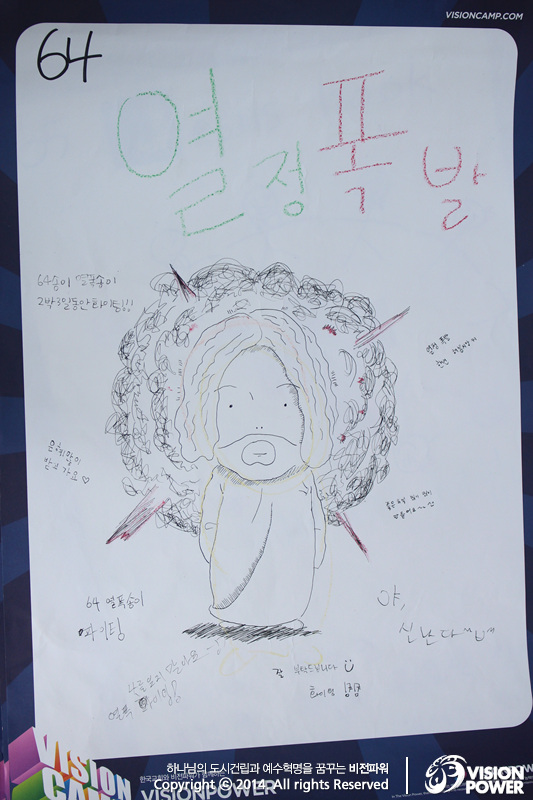 VISIONCAMP.COM
64
열정폭발
64송이 열폭송이
2박3일동안 화이팅!!
은혜많이
받고가요♡
64 열폭송이
파이팅
야,
신난다
잘 부탁드립니다
화이팅
VISION
CAMP
하나님의 도시건립과 예수혁명을 꿈꾸는 비전파워
Copyright © 2014. All rights Reserved
VISION
POWER